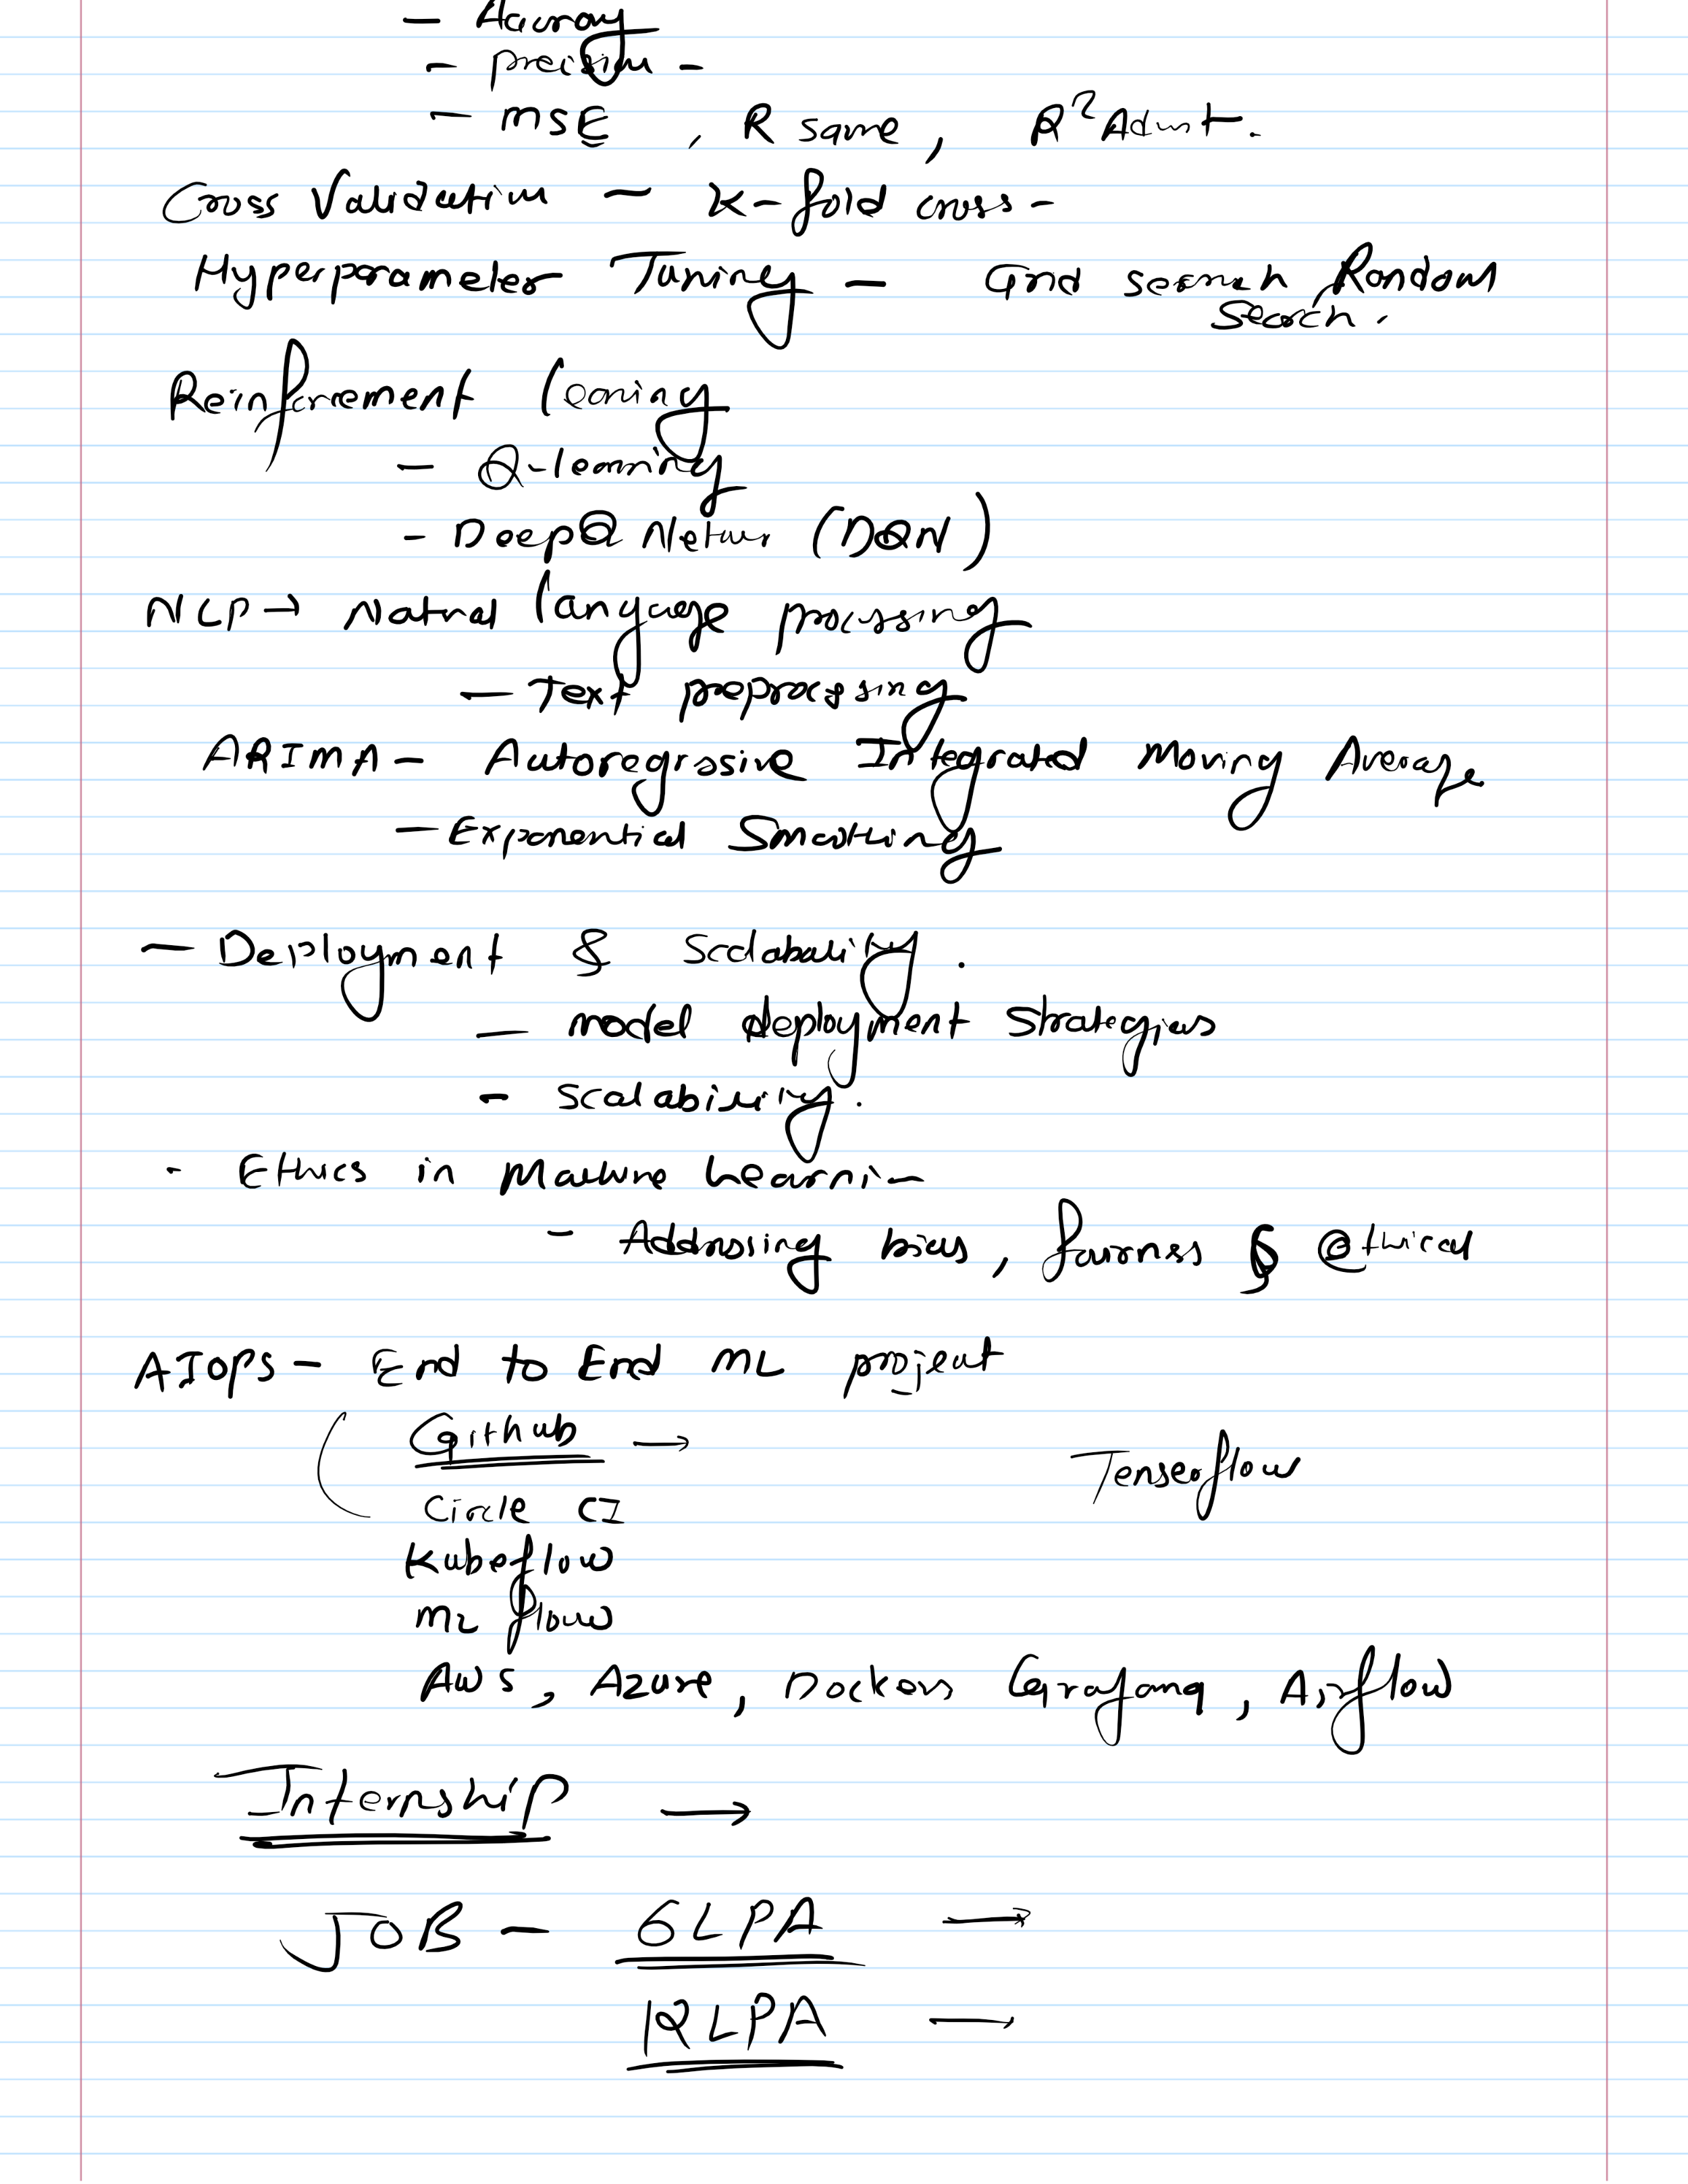 - Accuracy
- precision -
- MSE , R square , R² Adjust.
Cross Validation - K-fold cross -
Hyperparameter Tuning - Grid search, Random
Search.
Reinforcement learning
- Q-learning
- Deep Q Network (DQN)
NLP → Natural language processing
- Text preprocessing
ARIMA - Autoregressive Integrated Moving Average
- Exponential Smoothing
- Deployment & Scalability.
- model deployment strategies
- scalability.
- Ethics in Machine Learni-
- Addressing bias, fairness & ethical
AIOPS - End to End ML project
Github →
Tenseoflow
Circle CI
Kubeflow
ML flow
AWS, Azure, Dockers Grafana, Airflow
Internship →
JOB - 6LPA →
12LPA →